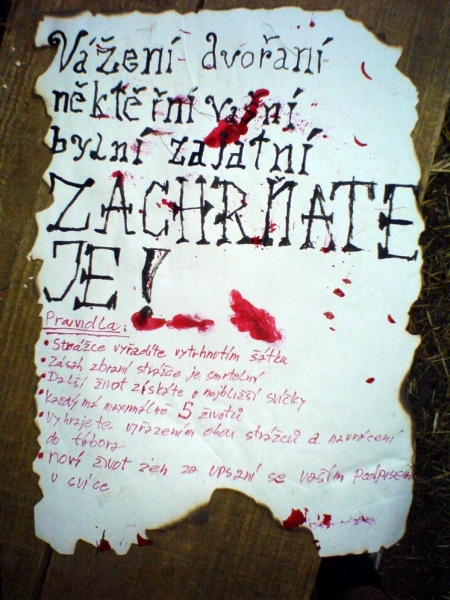 Vážení dvořaní
někteřní vašní
bylní zajatní
ZACHRŇATE
JE!
Pravidla:
• Strážce vyřadíte vytrhnutím šátku
• Zásah zbraní strážce je smrtelný
• Další život získáte u nejbližší svíčky
• Každý má maximálně 5 životů
• Vyhrajete vyřazením obou strážců a navrácení
do tábora
• nový život jen za upsání se vaším podpisem
u svíce